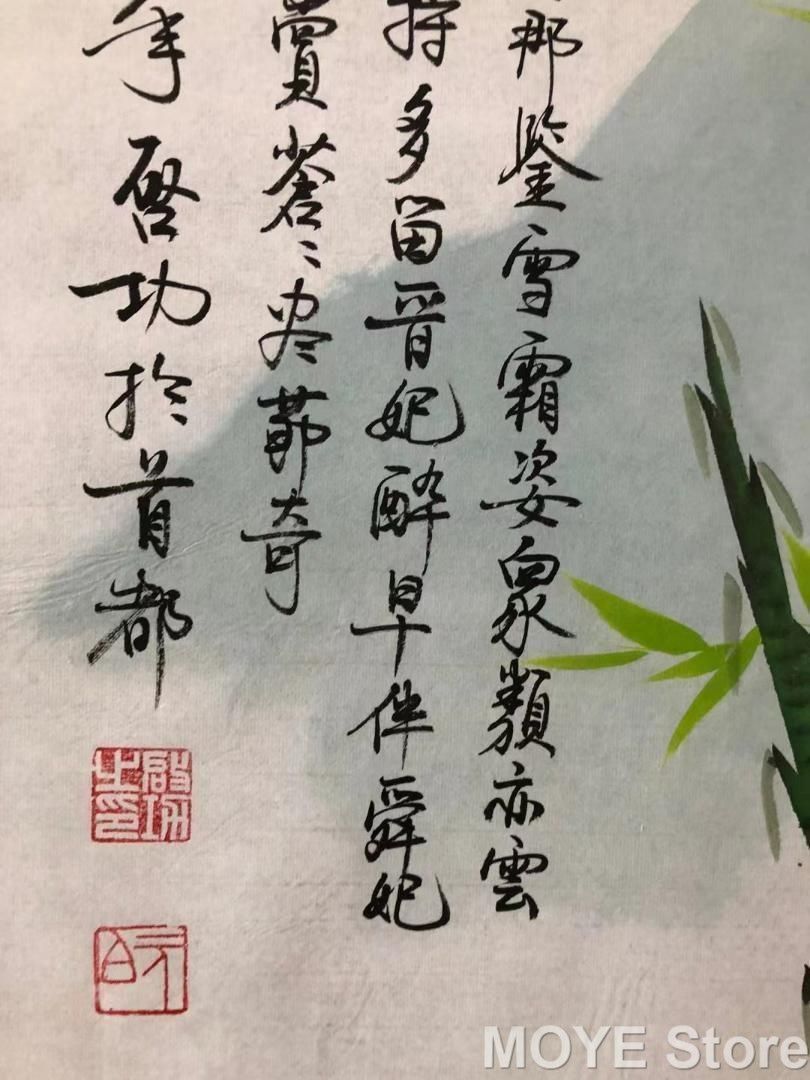 那鑒雪霜姿衆類亦雲
持多留晉妃醉早伴舜妃
賞蒼〻尽節奇
年啓功於首都
啟功之印
元白
MOYE Store